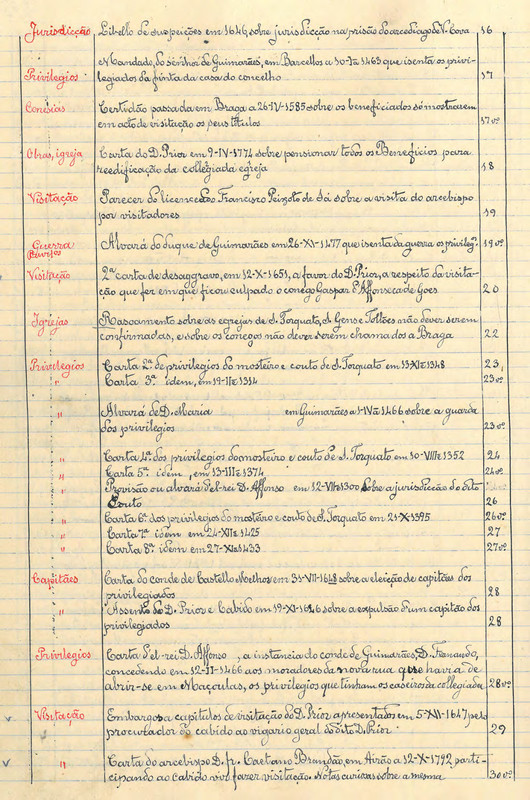 Jurisdicção Libello de suspeições em 1646 sobre jurisdicção na prisão do arcediago de V. Cova 16
Mandado, do senhor de Guimarães, em Barcellos a 30-IX-1463 que isenta os privi-
Privilegios legiados da finta da casa do concelho 17
Conesias Certidão passada em Braga a 26-IV-1585 sobre os beneficiados só mostrarem
em acto de visitação os seus titulos 17vº
Obras, igreja Carta do D. Prior em 9-IV-1774 sobre pensionar todos os Beneficios para
reedificação da collegiada egreja 18
Visitação Parecer do licenceado Francisco Peixoto de Sá sobre a visita do arcebispo
por visitadores 19
Guerra Alvará do duque de Guimarães em 26-XI-1477 que isenta da guerra os privileg. 19vº
Visitação 2ª carta de desaggravo, em 12-X-1651, a favor do D. Prior, a respeito da visita-
ção que fez em que ficou culpado o conego Gaspar d'Affonseca de Goes 20
Igrejas Rasoamento sobre as egrejas de S. Torquato, S. Gens e Tollões não deverem ser
confirmadas, e sobre os conegos não deverem ser chamados a Braga 22
Privilegios Carta 2ª de privilegios do mosteiro e couto de S. Torquato em 13-XI-1348 23
" Carta 3ª idem, em 19-II-1314 23vº
" Alvará de D. Maria em Guimarães a 1-IV-1466 sobre a guarda
dos privilegios 23vº
" Carta 4ª dos privilegios do mosteiro e couto de S. Torquato em 30-VIII-1352 24
" Carta 5ª idem, em 13-III-1374 24vº
" Provisão ou alvará d'el-rei D. Affonso em 12-VII-1300 sobre a jurisdicção do dito
Couto 26
" Carta 6ª dos privilegios do mosteiro e couto de S. Torquato em 21-X-1395 26vº
" Carta 7ª idem em 24-XII-1425 27
" Carta 8ª idem em 27-XI-1433 27vº
Capitães Carta do conde de Castello Melhor em 31-VII-1648 sobre a eleição de capitães dos
privilegiados 28
" Assento do D. Prior e Cabido em 19-XI-1646 sobre a expulsão d'um capitão dos
privilegiados 28
Privilegios Carta d'el-rei D. Affonso , a instancia do conde de Guimarães, D. Fernando,
concedendo em 12-II-1466 aos moradores da nova rua que havia de
abrir-se em Maçoulas, os privilegios que tinham os caseiros da collegiada 28vº
Visitação Embargos a capitulos de visitação do D. Prior apresentados em 5-XII-1647 pelo
procurador do cabido ao vigario geral do dito D. Prior 29
" Carta do arcebispo D. fr. Caetano Brandão, em Airão a 12-X-1792 parti-
cipando ao cabido vir fazer visitação. Notas curiosas sobre a mesma 30vº